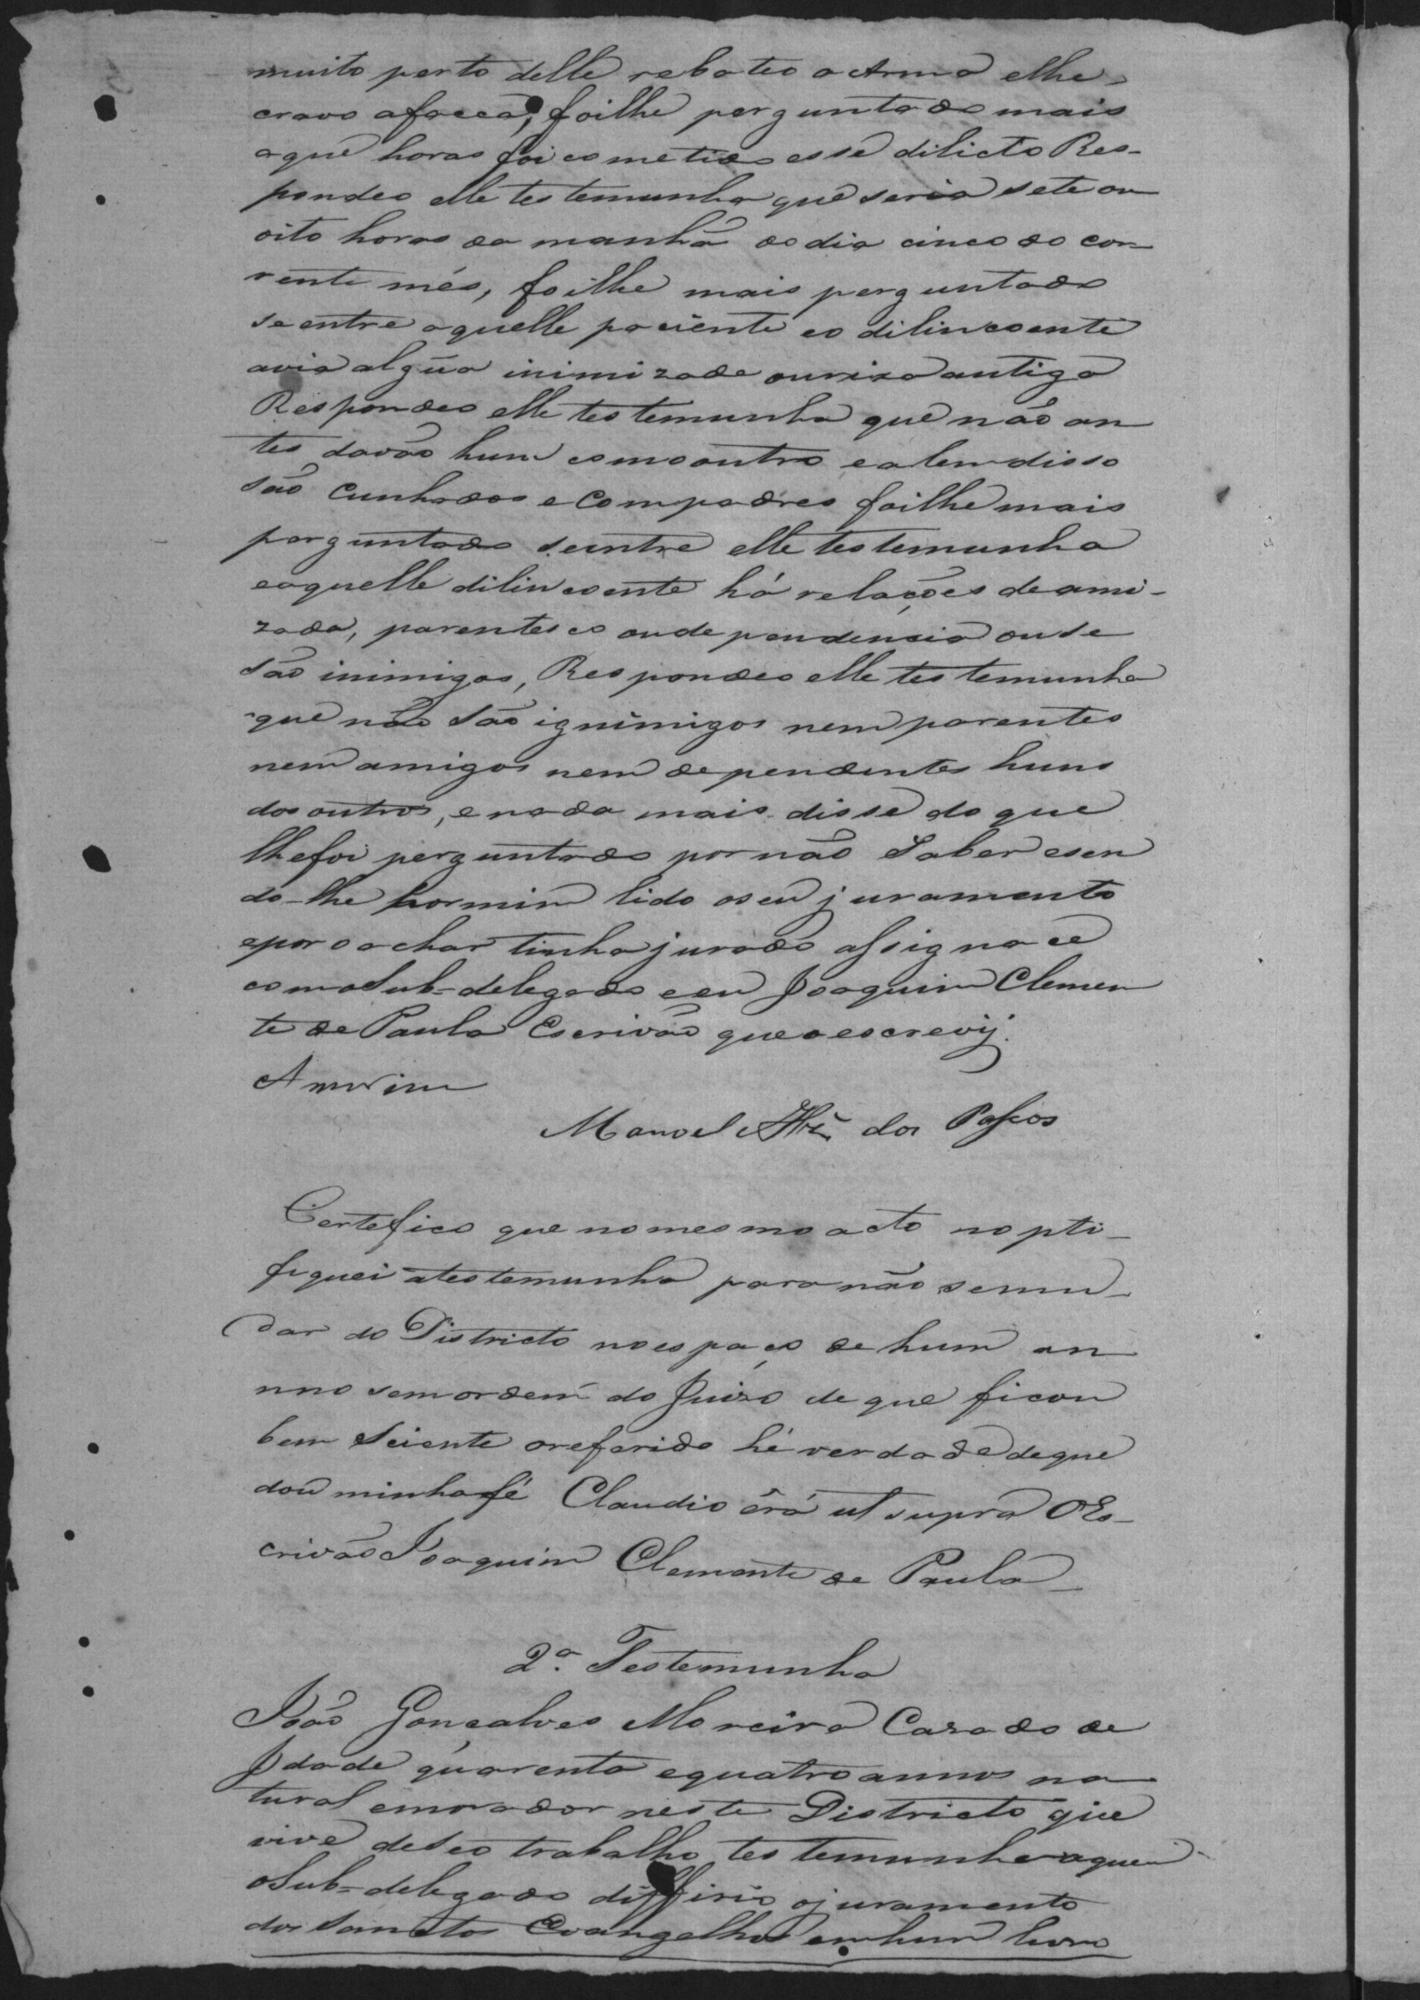 muito perto delle rebateo a Arma elhe
cravo afacca, foilhe perguntado mais
aque horas foi cometido esse dilicto Res-
pondeo elle testemunha que seria sete ou
oito horas da manhã do dia cinco do cor-
rente més, foilhe mais perguntado
se entre aquelle paciente eo dilincoente
avia algũa inimizade ourixa antiga
Respondeo elle testemunha que não an
tes davão hum comooutro ealem disso
são Cunhados e Compadres foilhe mais
perguntado seentre elle testemunha
eaquelle dilincoente há relações de ami-
zada, parentesco oudependencia ouse
são inimigos, Respondeo elle testemunha
que não são ignimigos nem parentes
nem amigos nem dependentes huns
dos outros, e nada mais disse do que
lhefoi perguntado por não Saber esen
do-lhe pormim lido oseu juramento
epor o achar tinha jurado assignace
como Sub-delegado eeu Joaquim Clemen
te de Paula Escrivão que o escrevij.
Amorim
Manoel dos Passos
Certefico que nomesmo acto nopti-
fiquei atestemunha para não semu-
dar do Districto noespaço de hum an
nno semordem do Juizo de que ficou
bem Sciente oreferido hé verdade deque
dou minhafé Claudio érá ut supra OEs-
crivão Joaquim Clemente de Paula
2ª. Testemunha
João Gonçalves Moreira Cazado de
Jdade quarenta equatro annos na
tural emorador neste Districto que
vive deSeo trabalho testemunha aquem
oSub-delegado differio ojuramento
dos Sanctos Evangelhos emhum livro